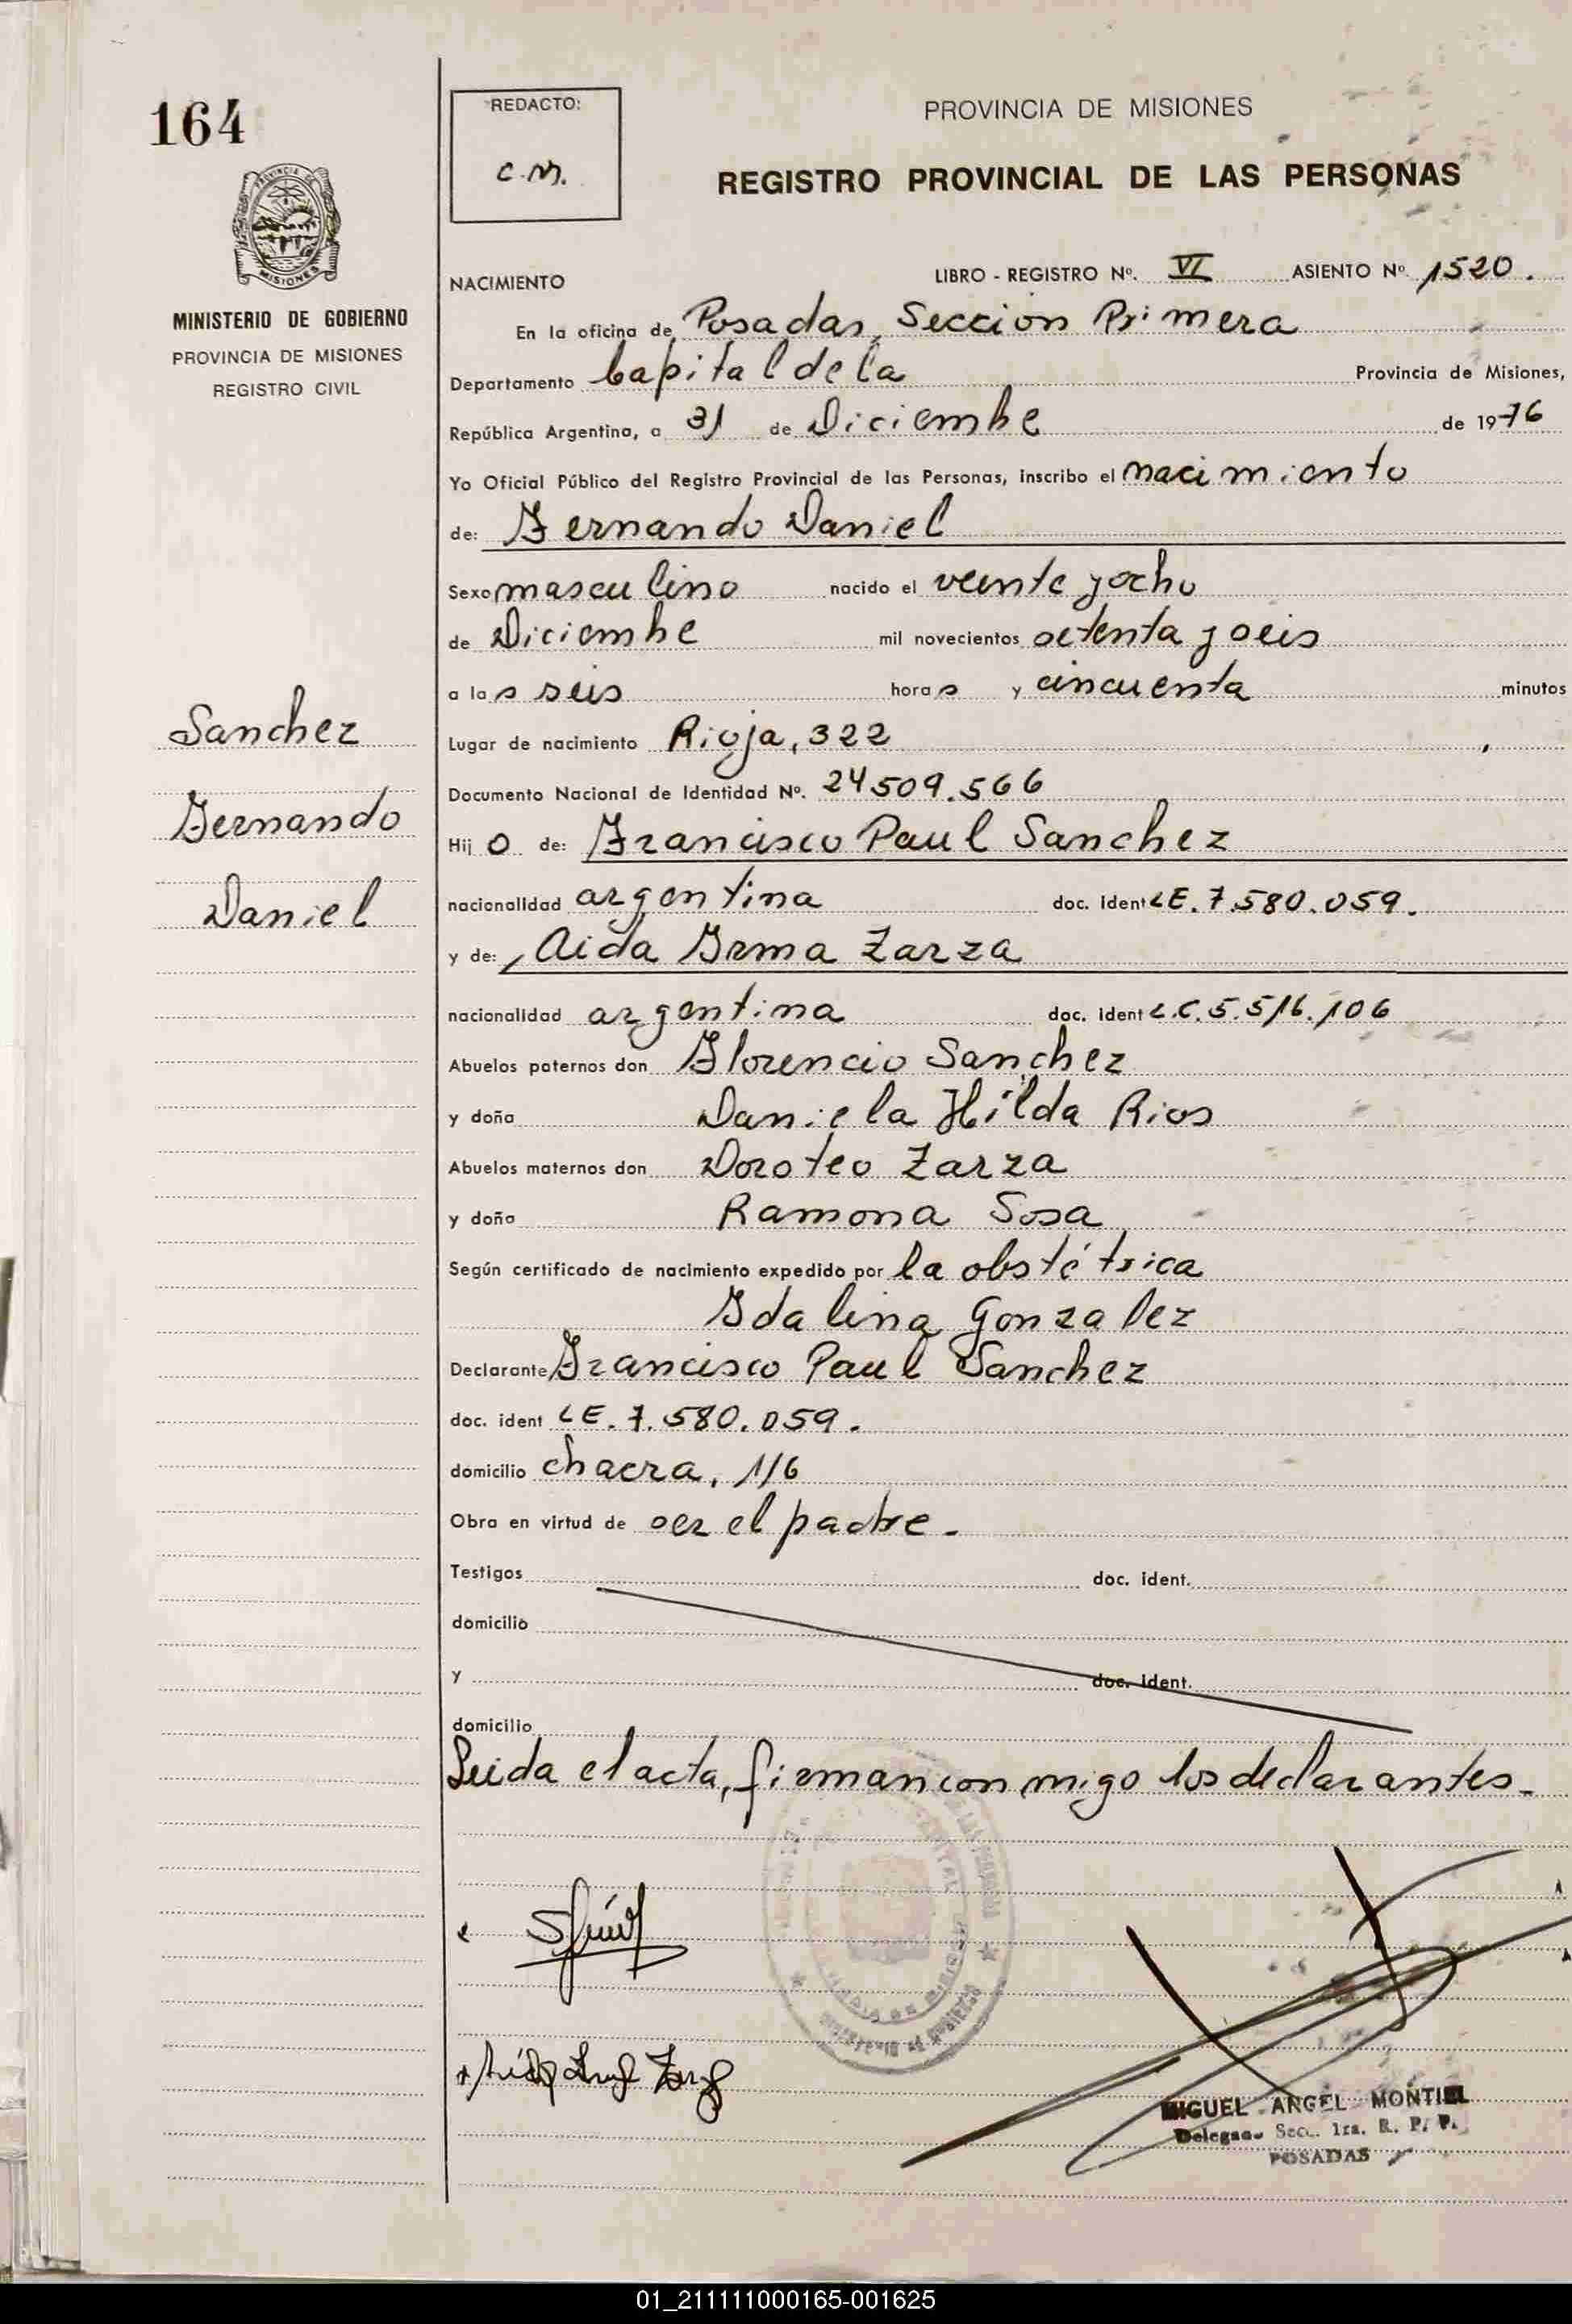 164
REDACTO:
C.M.
PROVINCIA DE MISIONES
REGISTRO PROVINCIAL DE LAS PERSONAS
PROVINCIA DE
MISIONES
MINISTERIO DE GOBIERNO
PROVINCIA DE MISIONES
REGISTRO CIVIL
NACIMIENTO LIBRO - REGISTRO Nº. VI ASIENTO Nº 1520.
En la oficina de Posadas, Seccion Primera
Departamento Capital de la Provincia de Misiones,
República Argentina, a 31 de Diciembre de 1976
Yo Oficial Público del Registro Provincial de las Personas, inscribo el nacimiento
de: Fernando Daniel
Sexo masculino nacido el veinte y ocho
de Diciembre mil novecientos setenta y seis
a las seis horas y cincuenta minutos
Sanchez
Lugar de nacimiento Rioja, 322
Documento Nacional de Identidad Nº. 24509.566
Fernando
Hijo de: Francisco Paul Sanchez
Daniel
nacionalidad argentina doc. ident LE. 7.580.059.
y de: Aida Irma Zarza
nacionalidad argentina doc. ident L.C. 5.516.106
Abuelos paternos don Florencio Sanchez
y doña Daniela Hilda Rios
Abuelos maternos don Doroteo Zarza
y doña Ramona Sosa
Según certificado de nacimiento expedido por la obstétrica
Idalina Gonzalez
Declarante Francisco Paul Sanchez
doc. ident LE. 7.580.059.
domicilio chacra, 116
Obra en virtud de ser el padre.
Testigos doc. ident.
domicilio
y doc. ident.
domicilio
Leida el acta, firman conmigo los declarantes.
MIGUEL ANGEL MONTIEL
Delegado Sec. 1ra. R. P. P.
POSADAS
01_211111000165-001625